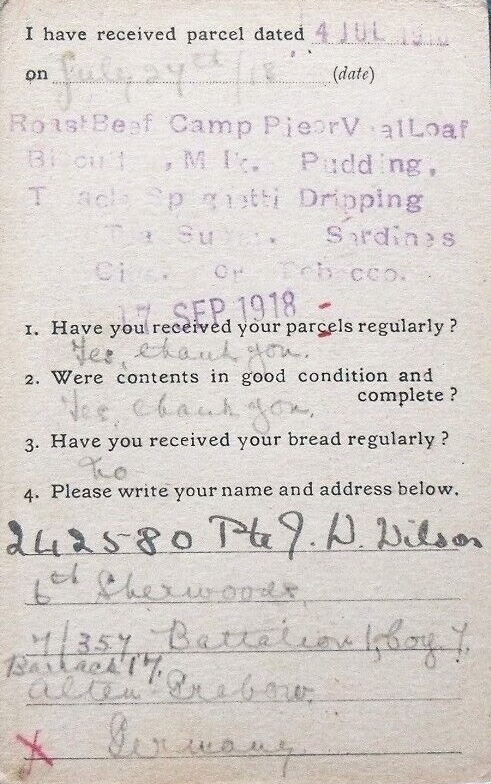 I have received parcel dated 4 JUL 1918
on July 27th/18 (date)
Roast Beef Camp Pie or Veal Loaf
Biscuit, Milk. Pudding,
Treacle Spaghetti Dripping
Tea Sugar. Sardines
Cigs. or Tobacco.
17 SEP 1918
1. Have you received your parcels regularly?
Yes, thank you.
2. Were contents in good condition and
complete?
Yes, thank you.
3. Have you received your bread regularly?
No
4. Please write your name and address below.
242580 Pte J. W. Wilson
6th Sherwoods,
7/357, Battalion 1, Coy 7.
Barrack 17.
Alten Grabow.
Germany